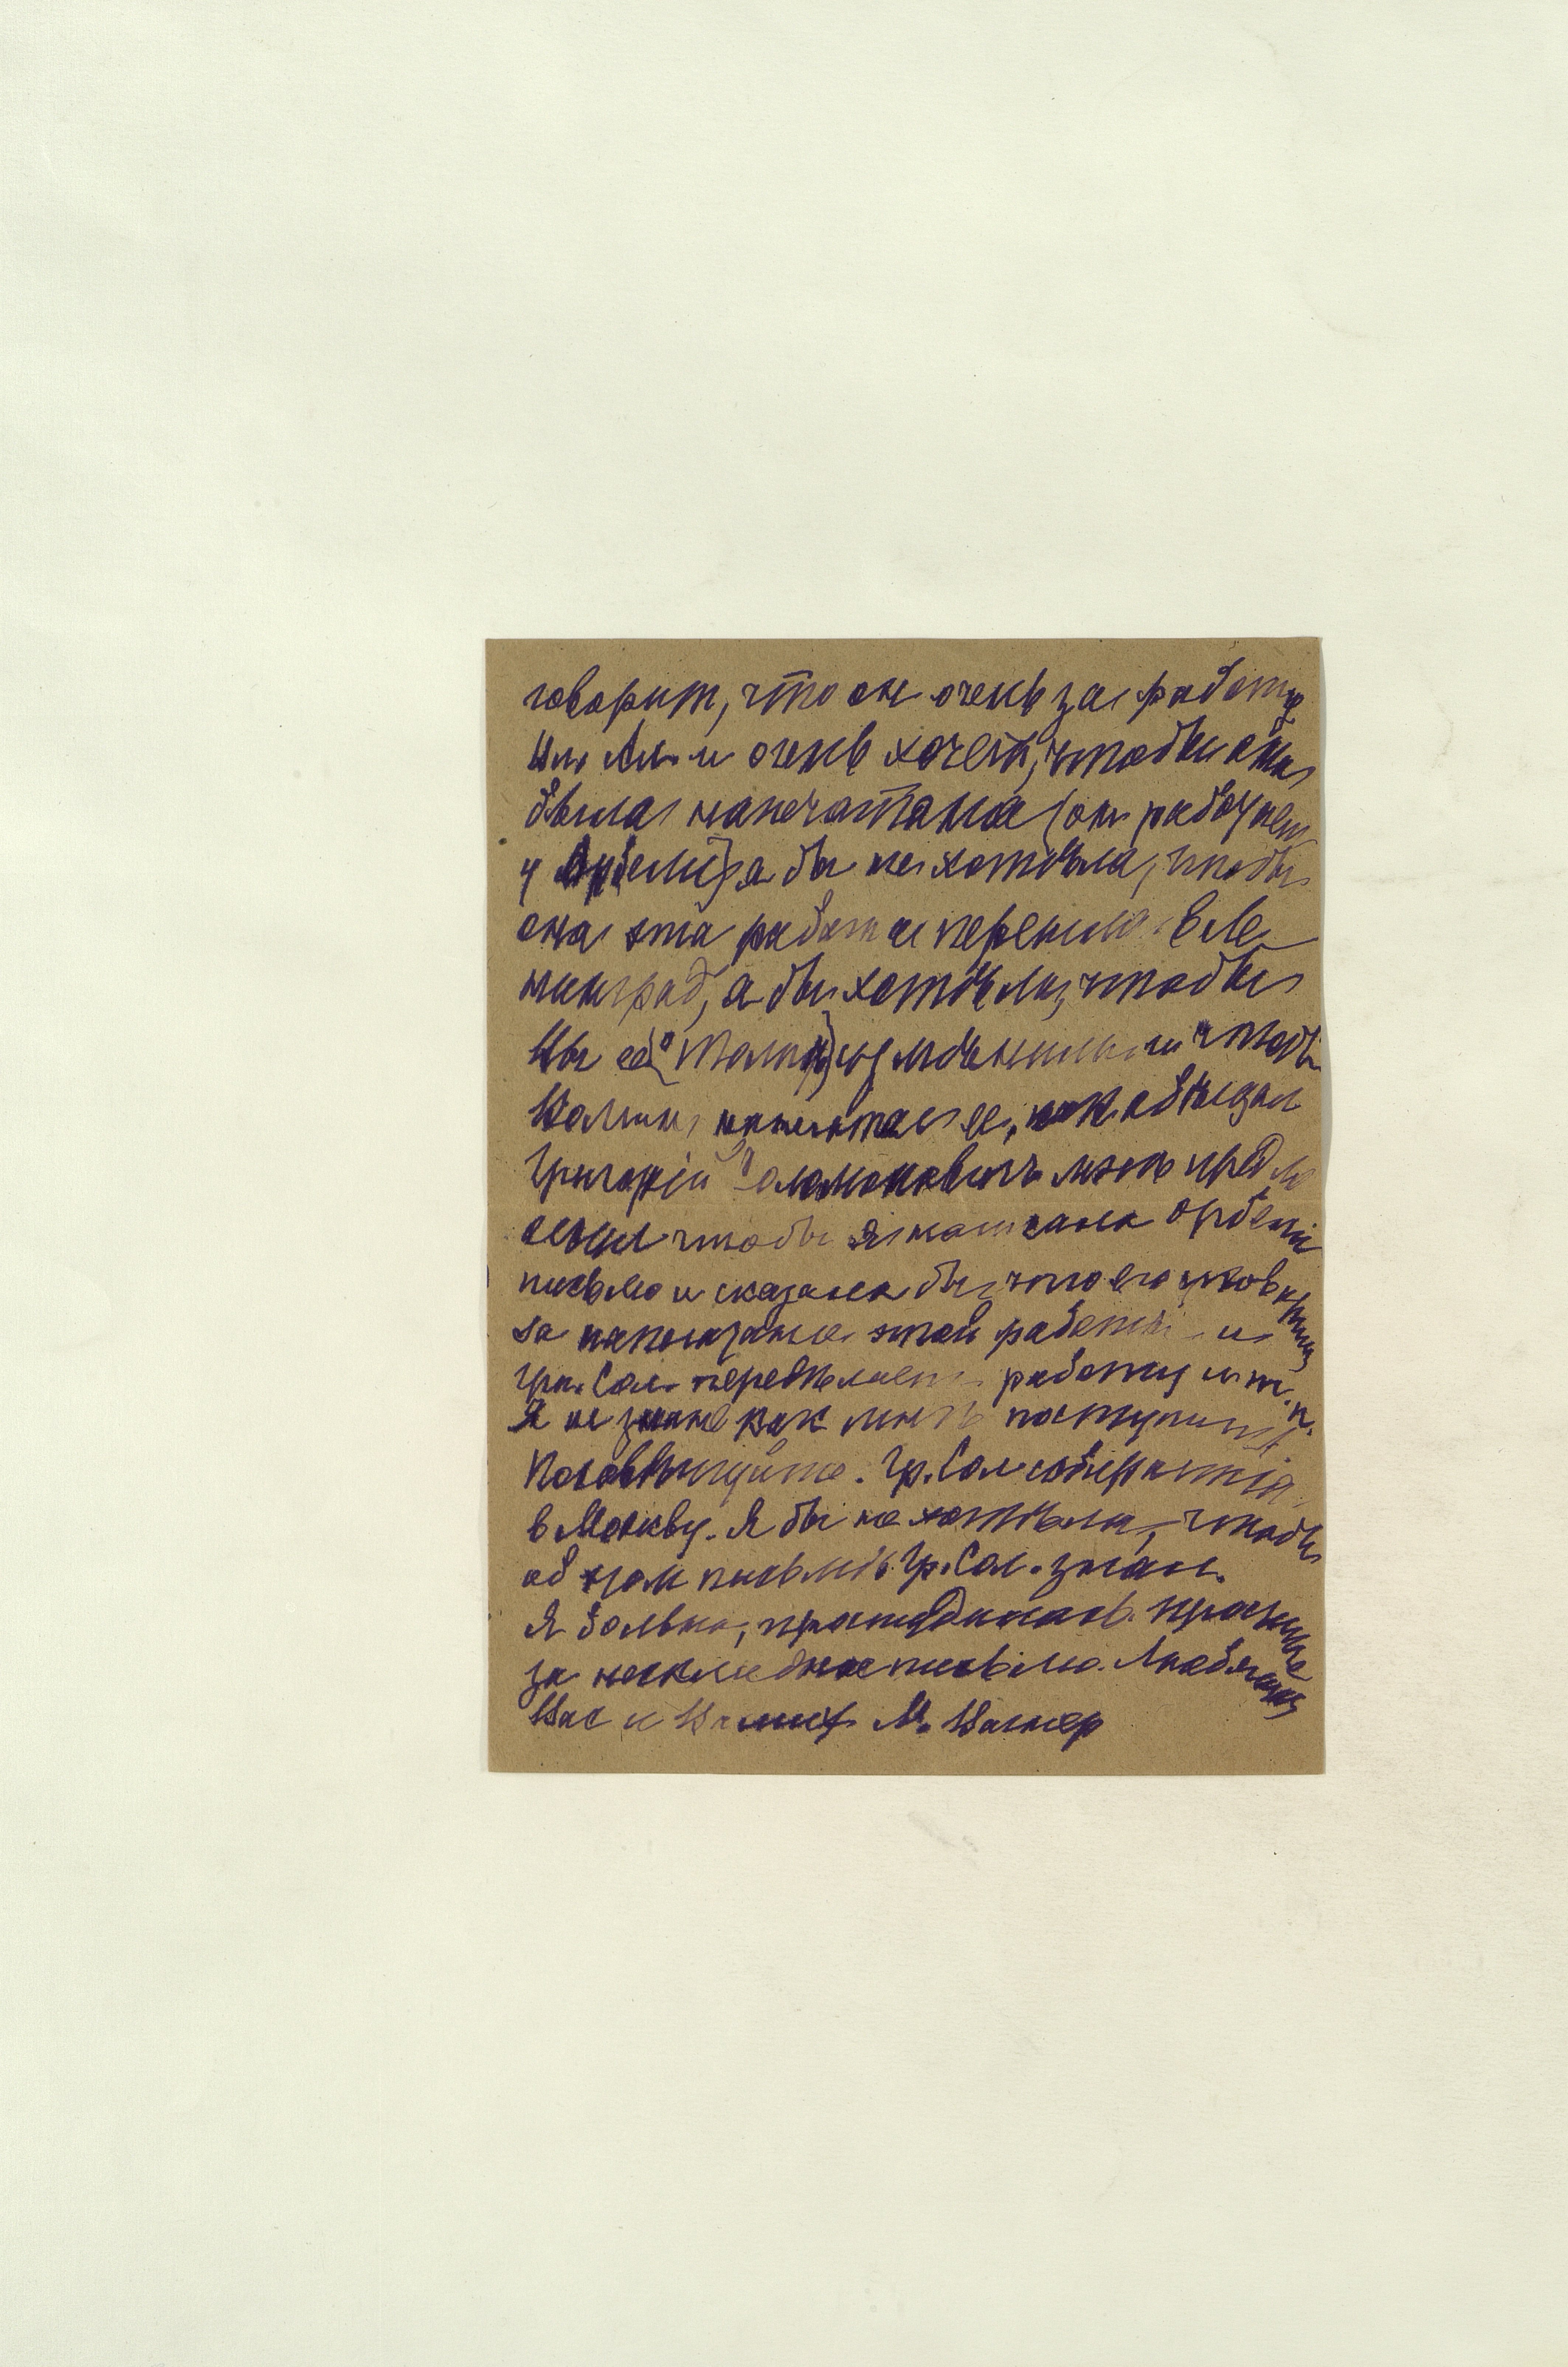 говорит, что он очень за работу
Ил. Ал. и очень хочет, чтобы она
была напечатана (он работает
у Орбели) я бы не хотѣла, чтобы
она эта работа перешла в Ле-
нинград, а бы хотѣла, чтобы
Вы её измѣнили и чтобы
Вапик напечатал ее, как обѣщал
Григорій Соломоновичъ мнѣ предло
жил чтобы я написала Орбели
письмо и сказала бы что его
за написание этой работы и
Гри. Сол. передѣлает работу и т. п.
Я не знаю как мнѣ поступить
Посовѣтуйте. Гр. Сол собирается
в Москву. Я бы не хотѣла, чтобы
об этом письмѣ Гр. Сол. знал.
Я больна, простудилась. Простите
за нескладное письмо. Любящая
Вас и М. Вагнер